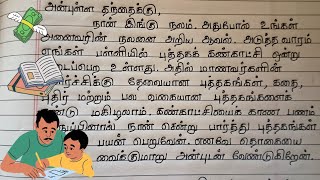 அன்புள்ள தந்தைக்கு,
நான் இங்கு நலம். அதுபோல் உங்கள்
அனைவரின் நலனை அறிய ஆவல். அடுத்த வாரம்
எங்கள் பள்ளியில் புத்தகக் கண்காட்சி ஒன்று
உள்ளது. அதில் மாணவர்களின்
தேவையான புத்தகங்கள், கதை,
மற்றும் பல வகையான புத்தகங்களைக்
மகிழலாம். கண்காட்சியைக் காண பணம்
நான் சென்று பார்த்து புத்தகங்கள்
பயன் பெறுவேன். எனவே தொகையை
வைக்குமாறு அன்புடன் வேண்டுகிறேன்.